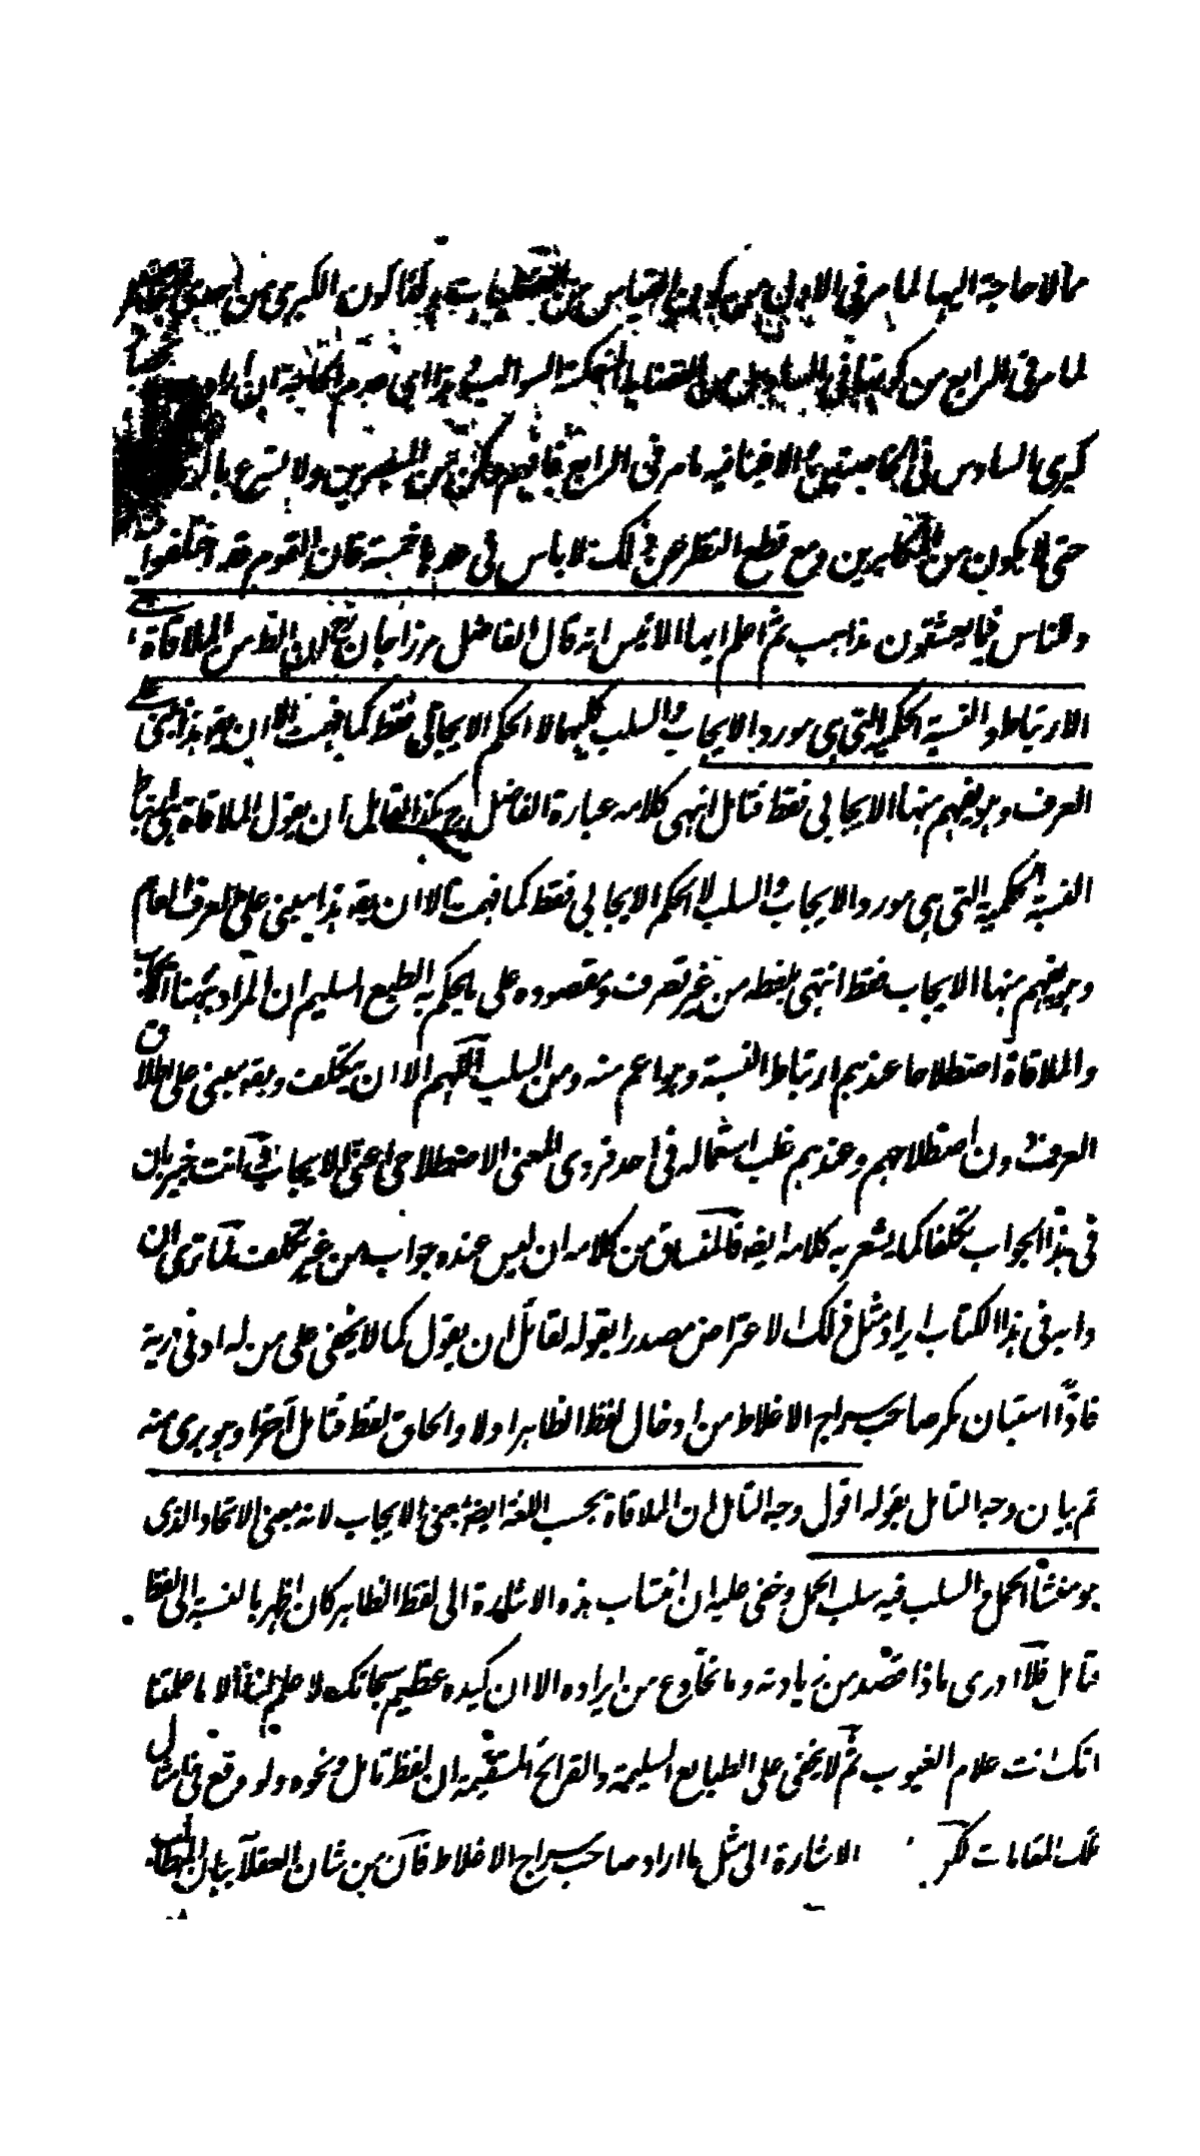 مما لا حاجة اليها لما مر فى الاول من كون القياس من القطعيات وكذا كون الكبرى من احدى
لما مر فى الرابع من كونها فى السادس من القضايا
كبرى السادس فى الخامسة مر فى الرابع فافهم وكن من المبصرين ولا تسرع
حتى لا تكون من المكابرين ومع قطع النظر عن ذلك فلا باس فى عدها خمسة فان القوم قد اختلفوا
وللناس فيما يعشقون مذاهب ثم اعلم ايها الانيس انه قال الفاضل مرزا جان الملاقاة
الارتباط والنسبة الحكمية التى هى مورد الايجاب والسلب كليهما لا الحكم الايجابى فقط كما فهمت الا ان يقه هذا مبنى على
العرف وهو يفهم منها الايجابى فقط فتامل انتهى كلامه عبارة الفاضل هكذا لقايل ان يقول الملاقاة
النسبة الحكمية التى هى مورد الايجاب والسلب لا الحكم الايجابى فقط كما فهمت الا ان يقه هذا مبنى على العرف العام
وهو يفهم منها الايجاب فقط انتهى بلفظه من غير تصرف ومقصوده على ما يحكم به الطبع السليم ان المراد ههنا
والملاقاة اصطلاحا عندهم ارتباط النسبة وهو اعم منه ومن السلب اللهم الا ان يتكلف ويقه مبنى على اطلاق
العرف دون اصطلاحهم وعندهم غلب استعماله فى احد فردى المعنى الاصطلاحى اعنى الايجاب انت خبير بان
فى هذا الجواب تكلفا كما يشعر به كلامه ايضه فالمنساق من كلامه ان ليس عنده جواب من غير تكلف كما ترى ان
دابه فى هذا الكتاب ايراد مثل ذلك الاعتراض مصدرا بقوله لقائل ان يقول كما لا يخفى على من له ادنى دربة
فاذا استبان مكر صاحب سراج الاغلاط من ادخال لفظ الظاهر اولا والحاق لفظ فتامل آخرا وهو برى منه
ثم بيان وجه التامل بقوله اقول وجه التامل ان الملاقاة بحسب اللغة ايضه بمعنى الايجاب لانه بمعنى الاتحاد الذى
هو منشأ الحمل والسلب فيه سلب الحمل وخفى عليه ان انتساب هذه الاشارة الى لفظ الظاهر كان اظهر بالنسبة الى لفظ
فتامل فلا ادرى ماذا قصد من زيادته وما تخادع من ايراده الا ان كيده عظيم سبحانك لا علم لنا الا ما علمتنا
انك انت علام الغيوب ثم لا يخفى على الطبايع السليمة والقرائح المستقيمة ان لفظ تامل ونحوه ولو وقع فى امثال
تلك المقامات الاشارة الى مثل ما اراد صاحب سراج الاغلاط فان من شان العقلآء